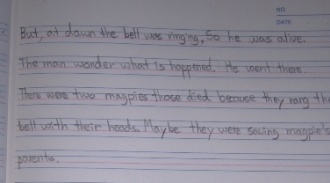 NO.
DATE
But, at dawn the bell was ringing, So he was alive.
The man wonder what is happened. He went there.
There were two magpies those died because they rang the
bell with their heads. Maybe they were saving magpie's
parents.